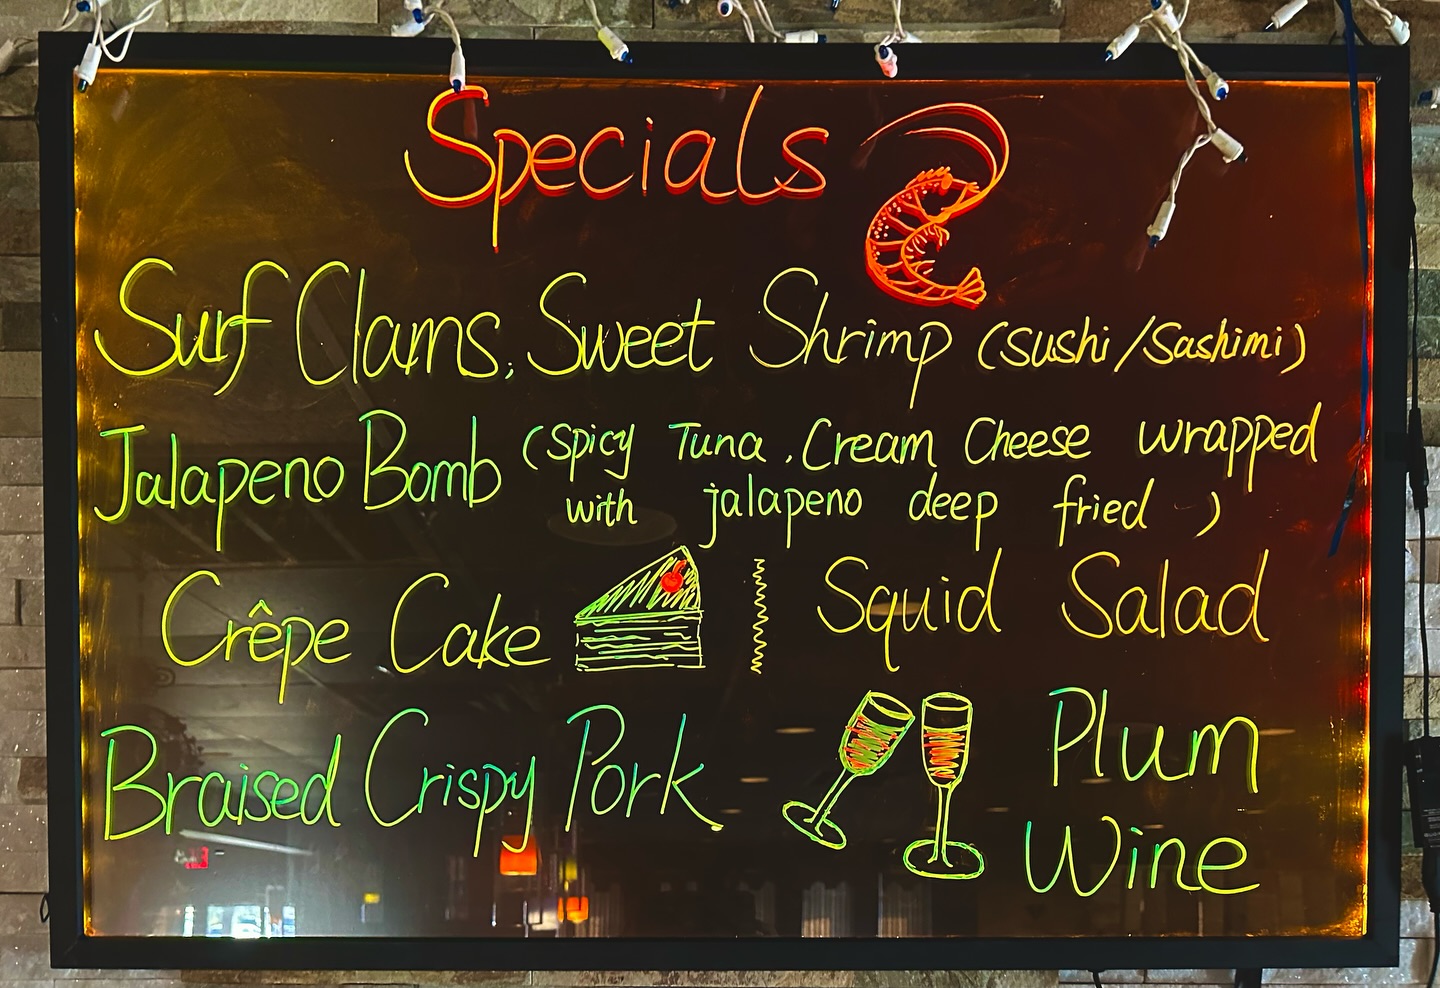 Specials
Surf Clams, Sweet Shrimp (Sushi/Sashimi)
Jalapeno Bomb (Spicy Tuna, Cream Cheese wrapped
with jalapeno deep fried)
Crêpe Cake
Squid Salad
Braised Crispy Pork.
Plum
Wine